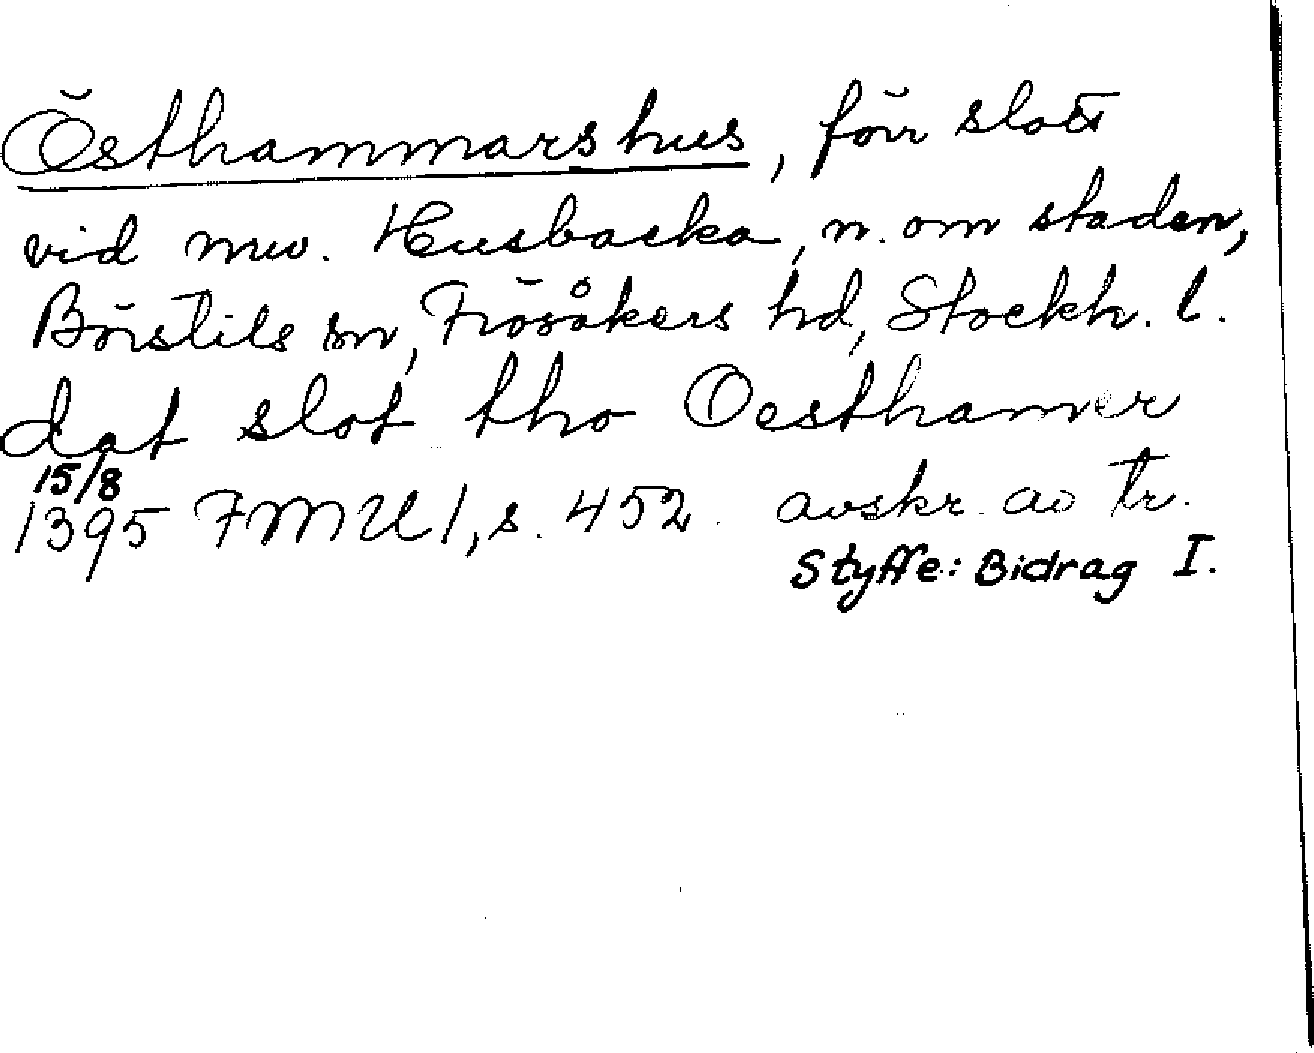 Östhammarshus, förr slott
vid nuv. Husbacka, n. om staden,
Börstils sn, Frösåkers hd, Stockh. l.
dat slot tho Oesthamer
15/8
1395 FMU 1, s. 452. avskr. av tr.
Styffe: Bidrag I.